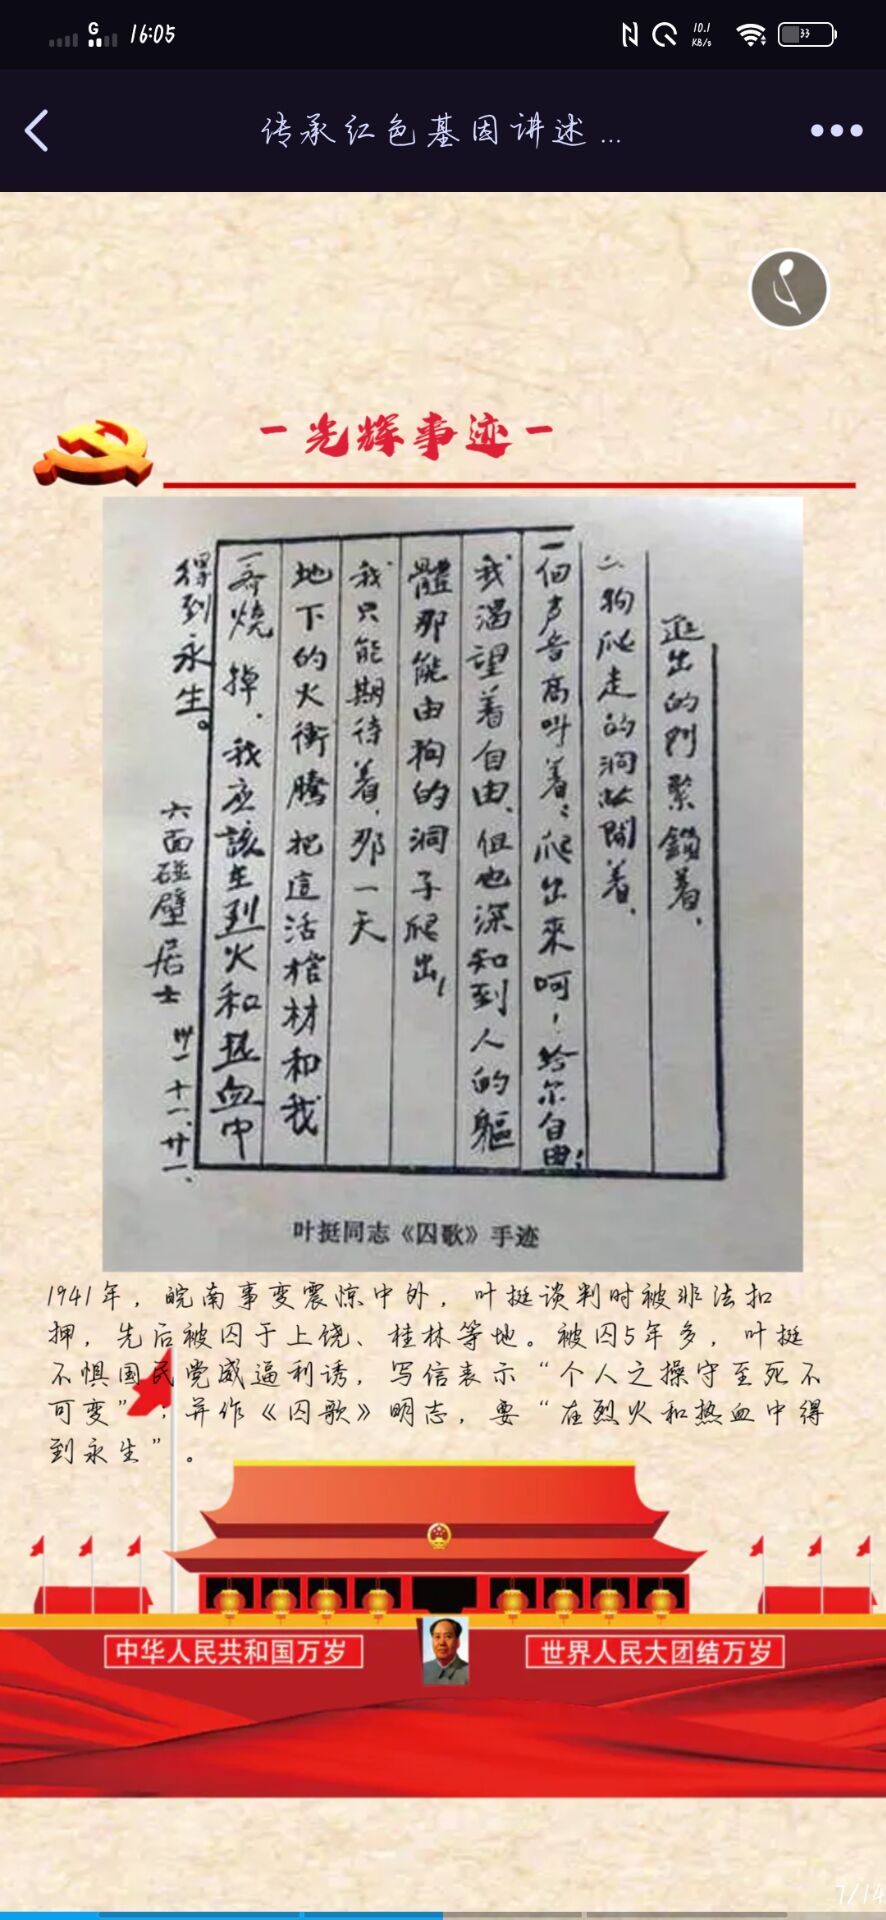 16:05
10.1
KB/s
33
传承红色基因讲述...
一光辉事迹一
出的门紧锁着、
狗爬走的洞敞開着、
一個声音高叫着:爬出來呵!给尔自由!
我渴望着自由、但也深知到人的軀
體那能由狗的洞子爬出!
我只能期待着、那一天
地下的火衝騰把這活棺材和我
一齐烧掉、我应該在烈火和热血中
得到永生。
六面碰壁居士 卅一、十一、廿一、
叶挺同志《囚歌》手迹
1941年，皖南事变震惊中外，叶挺谈判时被非法扣
押，先后被囚于上饶、桂林等地。被囚5年多，叶挺
不惧国民党威逼利诱，写信表示“个人之操守至死不
可变”；并作《囚歌》明志，要“在烈火和热血中得
到永生”。
中华人民共和国万岁
世界人民大团结万岁
7/14